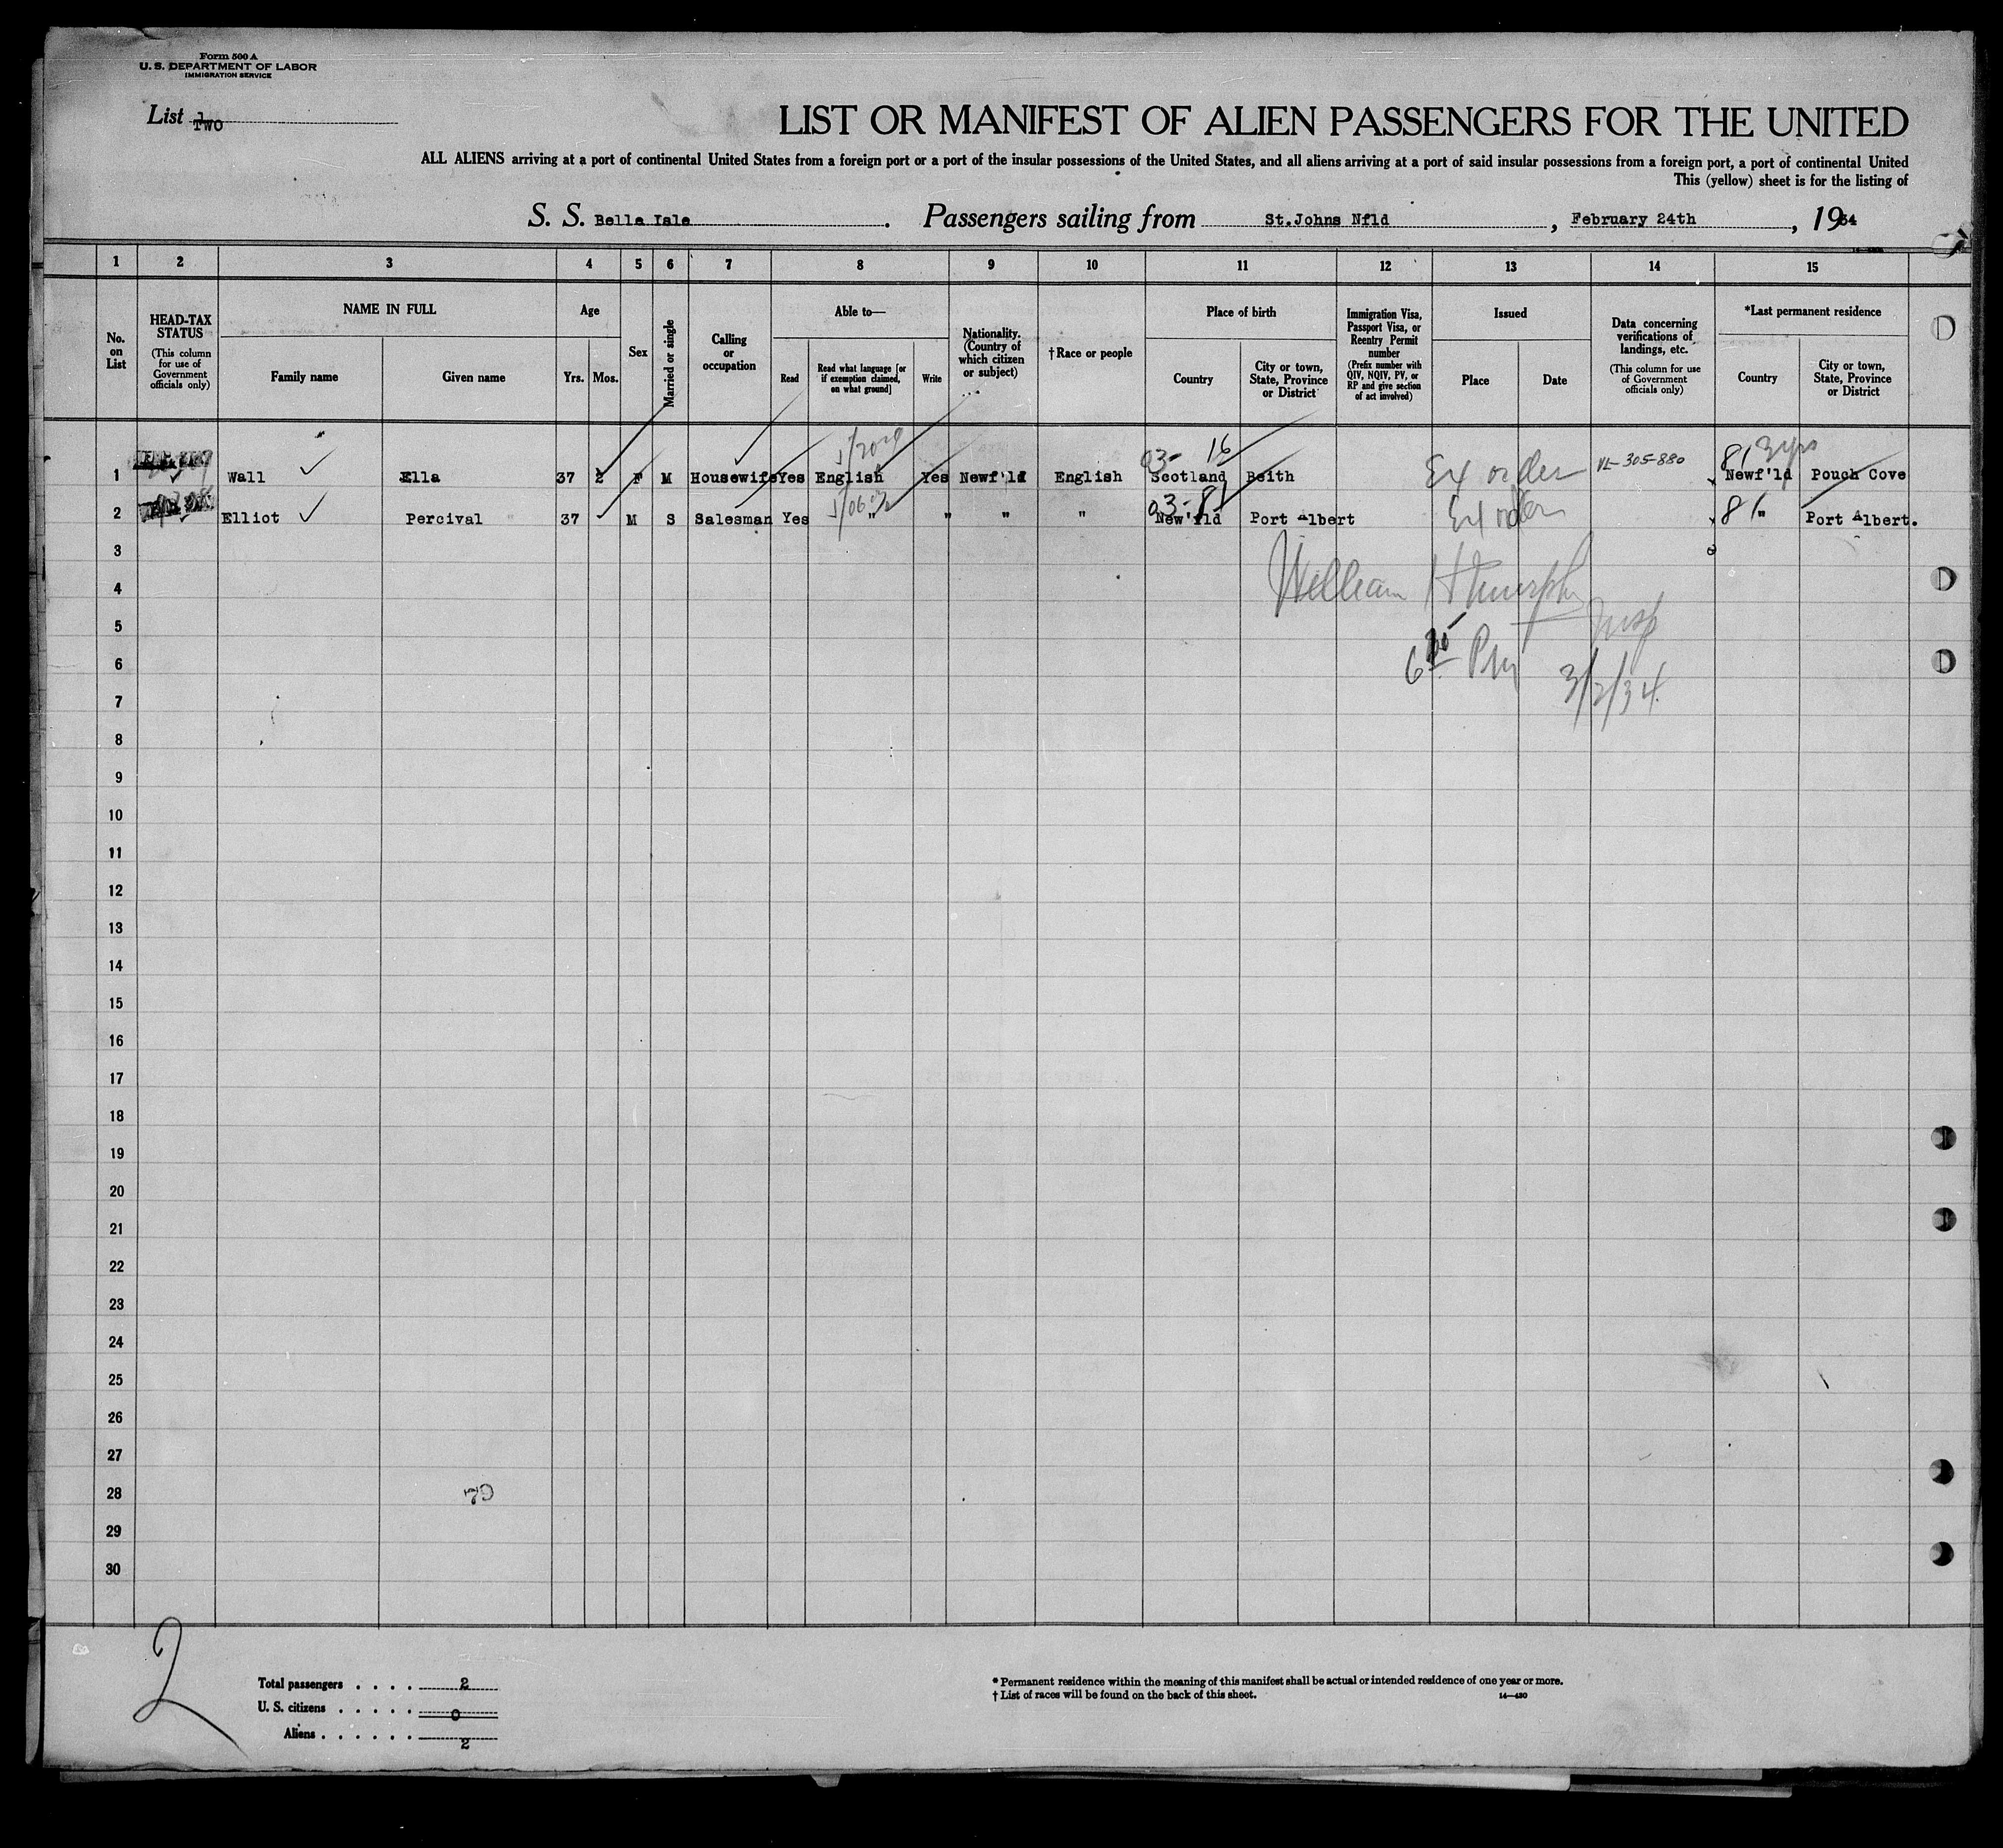 Form 500 A
U. S. DEPARTMENT OF LABOR
IMMIGRATION SERVICE
List TWO
LIST OR MANIFEST OF ALIEN PASSENGERS FOR THE UNITED
ALL ALIENS arriving at a port of continental United States from a foreign port or a port of the insular possessions of the United States, and all aliens arriving at a port of said insular possessions from a foreign port, a port of continental United
This (yellow) sheet is for the listing of
S. S. Belle Isle. Passengers sailing from St.Johns Nfld, February 24th, 1934
1 2 3 4 5 6 7 8 9 10 11 12 13 14 15
No. on List
HEAD-TAX STATUS
(This column for use of Government officials only)
NAME IN FULL
Family name
Given name
Age
Yrs.
Mos.
Sex
Married or single
Calling or occupation
Able to—
Read
Read what language [or if exemption claimed, on what ground]
Write
Nationality. (Country of which citizen or subject)
† Race or people
Place of birth
Country
City or town, State, Province or District
Immigration Visa, Passport Visa, or Reentry Permit number
(Prefix number with QIV, NQIV, PV, or RP and give section of act involved)
Issued
Place
Date
Data concerning verifications of landings, etc.
(This column for use of Government officials only)
*Last permanent residence
Country
City or town, State, Province or District
03- 16 81 3 yrs
1 Wall Ella 37 2 F M Housewife Yes English Yes Newf'ld English Scotland Beith Ex order VL-305-880 Newf'ld Pouch Cove
03-81
2 Elliot Percival 37 M S Salesman Yes " " " " New'fld Port Albert Ex order 81 " Port Albert.
3
4 William H Murphy
5 Insp
6 6 Pm
3/2/34
7
8
9
10
11
12
13
14
15
16
17
18
19
20
21
22
23
24
25
26
27
28
29
30
2
Total passengers . . . . 2
U. S. citizens . . . . . 0
Aliens . . . . . . 2
* Permanent residence within the meaning of this manifest shall be actual or intended residence of one year or more.
† List of races will be found on the back of this sheet.
14—430